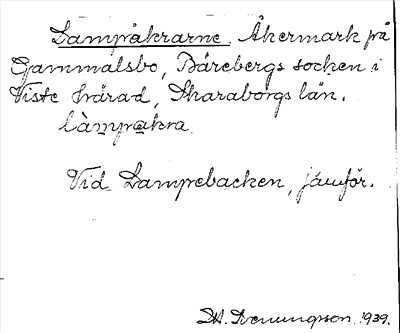 Lampåkrarne. Åkermark på
Gammalsbo, Bärebergs socken i
Viste härad, Skaraborgs län.
làmpakra.
Vid Lampebacken, jämför.
1939.